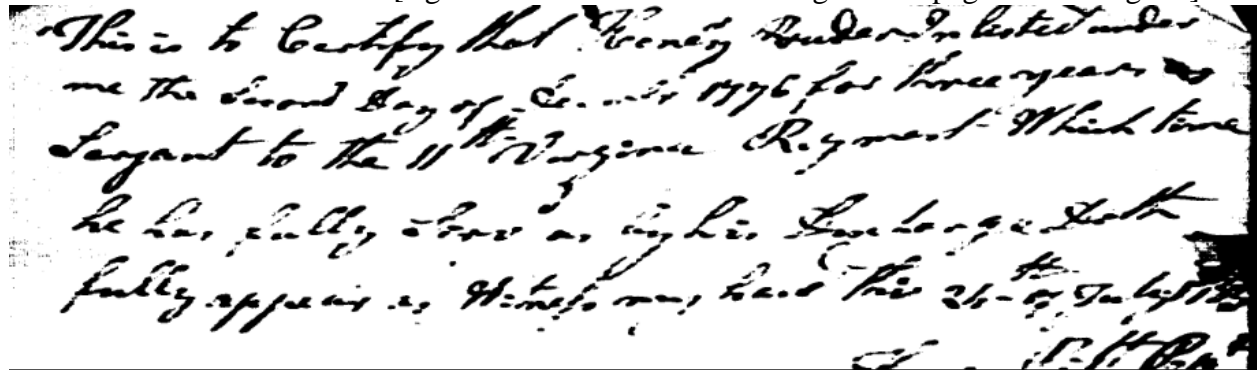 This is to Certify that Inlisted under
me the Second Day of 1776 for three years as
Sergant to the 11th Virginia Regment Which time
he has fully as by his Discharge Doth
fully appear as Witness my hand this of July